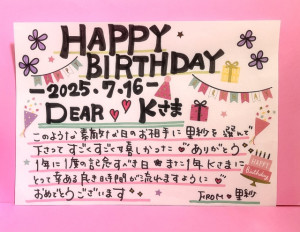 HAPPY
BIRTHDAY
-2025.7.16-
DEAR Kさま
このような素敵な日のお相手に里紗を選んで
下さってすごくすごくも嬉しかった♡ありがとう♡
1年に1度の記念すべき日 また1年Kさまに
とって幸ある良き時間が流れますように♡
おめでとうございます
FROM 里紗
HAPPY
Birthday